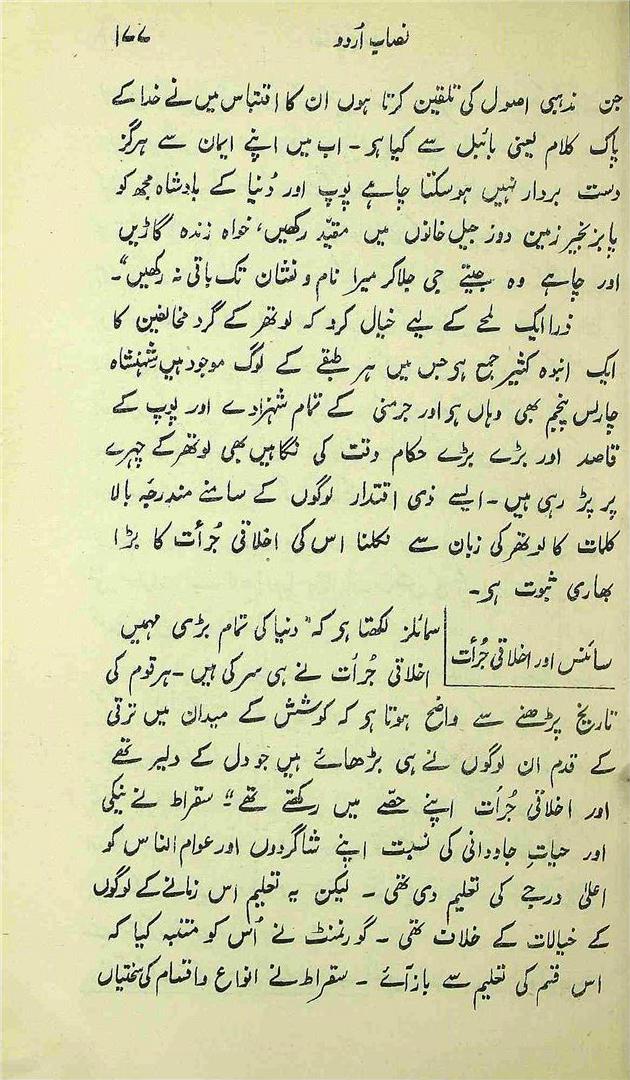 نصابِ اُردو ۱۷۷
جن مذہبی اصول کی تلقین کرتا ہوں ان کا اقتباس میں نے خدا کے
پاک کلام یعنی بائبل سے کیا ہو ۔ اب میں اپنے ایمان سے ہرگز
دست بردار نہیں ہو سکتا چاہے پوپ اور دُنیا کے بادشاہ مجھ کو
پابزنجیر زمین دوز جیل خانوں میں مقیّد رکھیں، خواہ زندہ گاڑیں
اور چاہے وہ جیتے جی جلا کر میرا نام و نشان تک باقی نہ رکھیں"۔
ذرا ایک لمحے کے لیے خیال کرو کہ لوتھر کے گرد مخالفین کا
ایک انبوہ کثیر جمع ہو جس میں ہر طبقے کے لوگ موجود ہیں شہنشاہ
چارلس پنجم بھی وہاں ہو اور جرمنی کے تمام شہزادے اور پوپ کے
قاصد اور بڑے بڑے حکام وقت کی نگاہیں بھی لوتھر کے چہرے
پر پڑ رہی ہیں ۔ ایسے ذی اقتدار لوگوں کے سامنے مندرجۂ بالا
کلمات کا لوتھر کی زبان سے نکلنا اس کی اخلاقی جُرأت کا بڑا
بھاری ثبوت ہو ۔
سائنس اور اخلاقی جُرأت
سمائلز لکھتا ہو کہ "دنیا کی تمام بڑی مہمیں
اخلاقی جُرأت نے ہی سر کی ہیں ۔ ہر قوم کی
تاریخ پڑھنے سے واضح ہوتا ہو کہ کوشش کے میدان میں ترقی
کے قدم ان لوگوں نے ہی بڑھائے ہیں جو دل کے دلیر تھے
اور اخلاقی جُرأت اپنے حصّے میں رکھتے تھے"۔ سقراط نے نیکی
اور حیاتِ جاودانی کی نسبت اپنے شاگردوں اور عوام الناس کو
اعلیٰ درجے کی تعلیم دی تھی ۔ لیکن یہ تعلیم اس زمانے کے لوگوں
کے خیالات کے خلاف تھی ۔ گورنمنٹ نے اُس کو متنبہ کیا کہ
اس قسم کی تعلیم سے باز آئے ۔ سقراط نے انواع و اقسام کی سختیاں